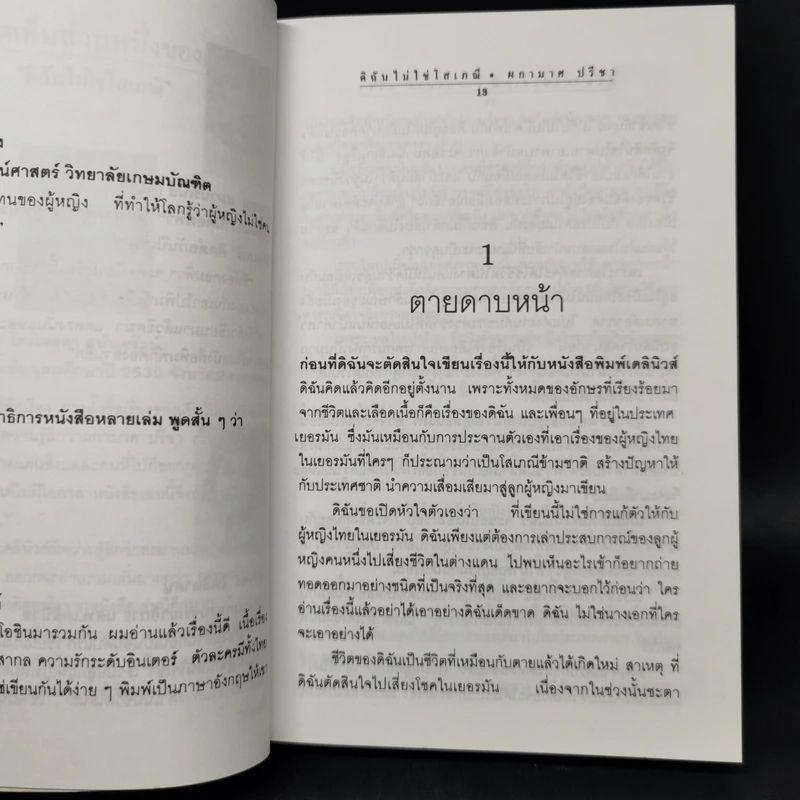 ง
น์ศาสตร์ วิทยาลัยเกษมบัณฑิต
ทนของผู้หญิง ที่ทำให้โลกรู้ว่าผู้หญิงไม่ใช่คน
าธิการหนังสือหลายเล่ม พูดสั้น ๆ ว่า
โอชินมารวมกัน ผมอ่านแล้วเรื่องนี้ดี เนื้อเรื่อง
สากล ความรักระดับอินเตอร์ ตัวละครมีทั้งไทย
ช่เขียนกันได้ง่าย ๆ พิมพ์เป็นภาษาอังกฤษให้เขา
ดิฉันไม่ใช่โสเภณี • ผกามาศ ปรีชา
13
1
ตายดาบหน้า
ก่อนที่ดิฉันจะตัดสินใจเขียนเรื่องนี้ให้กับหนังสือพิมพ์เดลินิวส์
ดิฉันคิดแล้วคิดอีกอยู่ตั้งนาน เพราะทั้งหมดของอักษรที่เรียงร้อยมา
จากชีวิตและเลือดเนื้อก็คือเรื่องของดิฉัน และเพื่อนๆ ที่อยู่ในประเทศ
เยอรมัน ซึ่งมันเหมือนกับการประจานตัวเองที่เอาเรื่องของผู้หญิงไทย
ในเยอรมันที่ใครๆ ก็ประณามว่าเป็นโสเภณีข้ามชาติ สร้างปัญหาให้
กับประเทศชาติ นำความเสื่อมเสียมาสู่ลูกผู้หญิงมาเขียน
ดิฉันขอเปิดหัวใจตัวเองว่า ที่เขียนนี้ไม่ใช่การแก้ตัวให้กับ
ผู้หญิงไทยในเยอรมัน ดิฉันเพียงแต่ต้องการเล่าประสบการณ์ของลูกผู้
หญิงคนหนึ่งไปเสี่ยงชีวิตในต่างแดน ไปพบเห็นอะไรเข้าก็อยากถ่าย
ทอดออกมาอย่างชนิดที่เป็นจริงที่สุด และอยากจะบอกไว้ก่อนว่า ใคร
อ่านเรื่องนี้แล้วอย่าได้เอาอย่างดิฉันเด็ดขาด ดิฉัน ไม่ใช่นางเอกที่ใคร
จะเอาอย่างได้
ชีวิตของดิฉันเป็นชีวิตที่เหมือนกับตายแล้วได้เกิดใหม่ สาเหตุ ที่
ดิฉันตัดสินใจไปเสี่ยงโชคในเยอรมัน เนื่องจากในช่วงนั้นชะตา